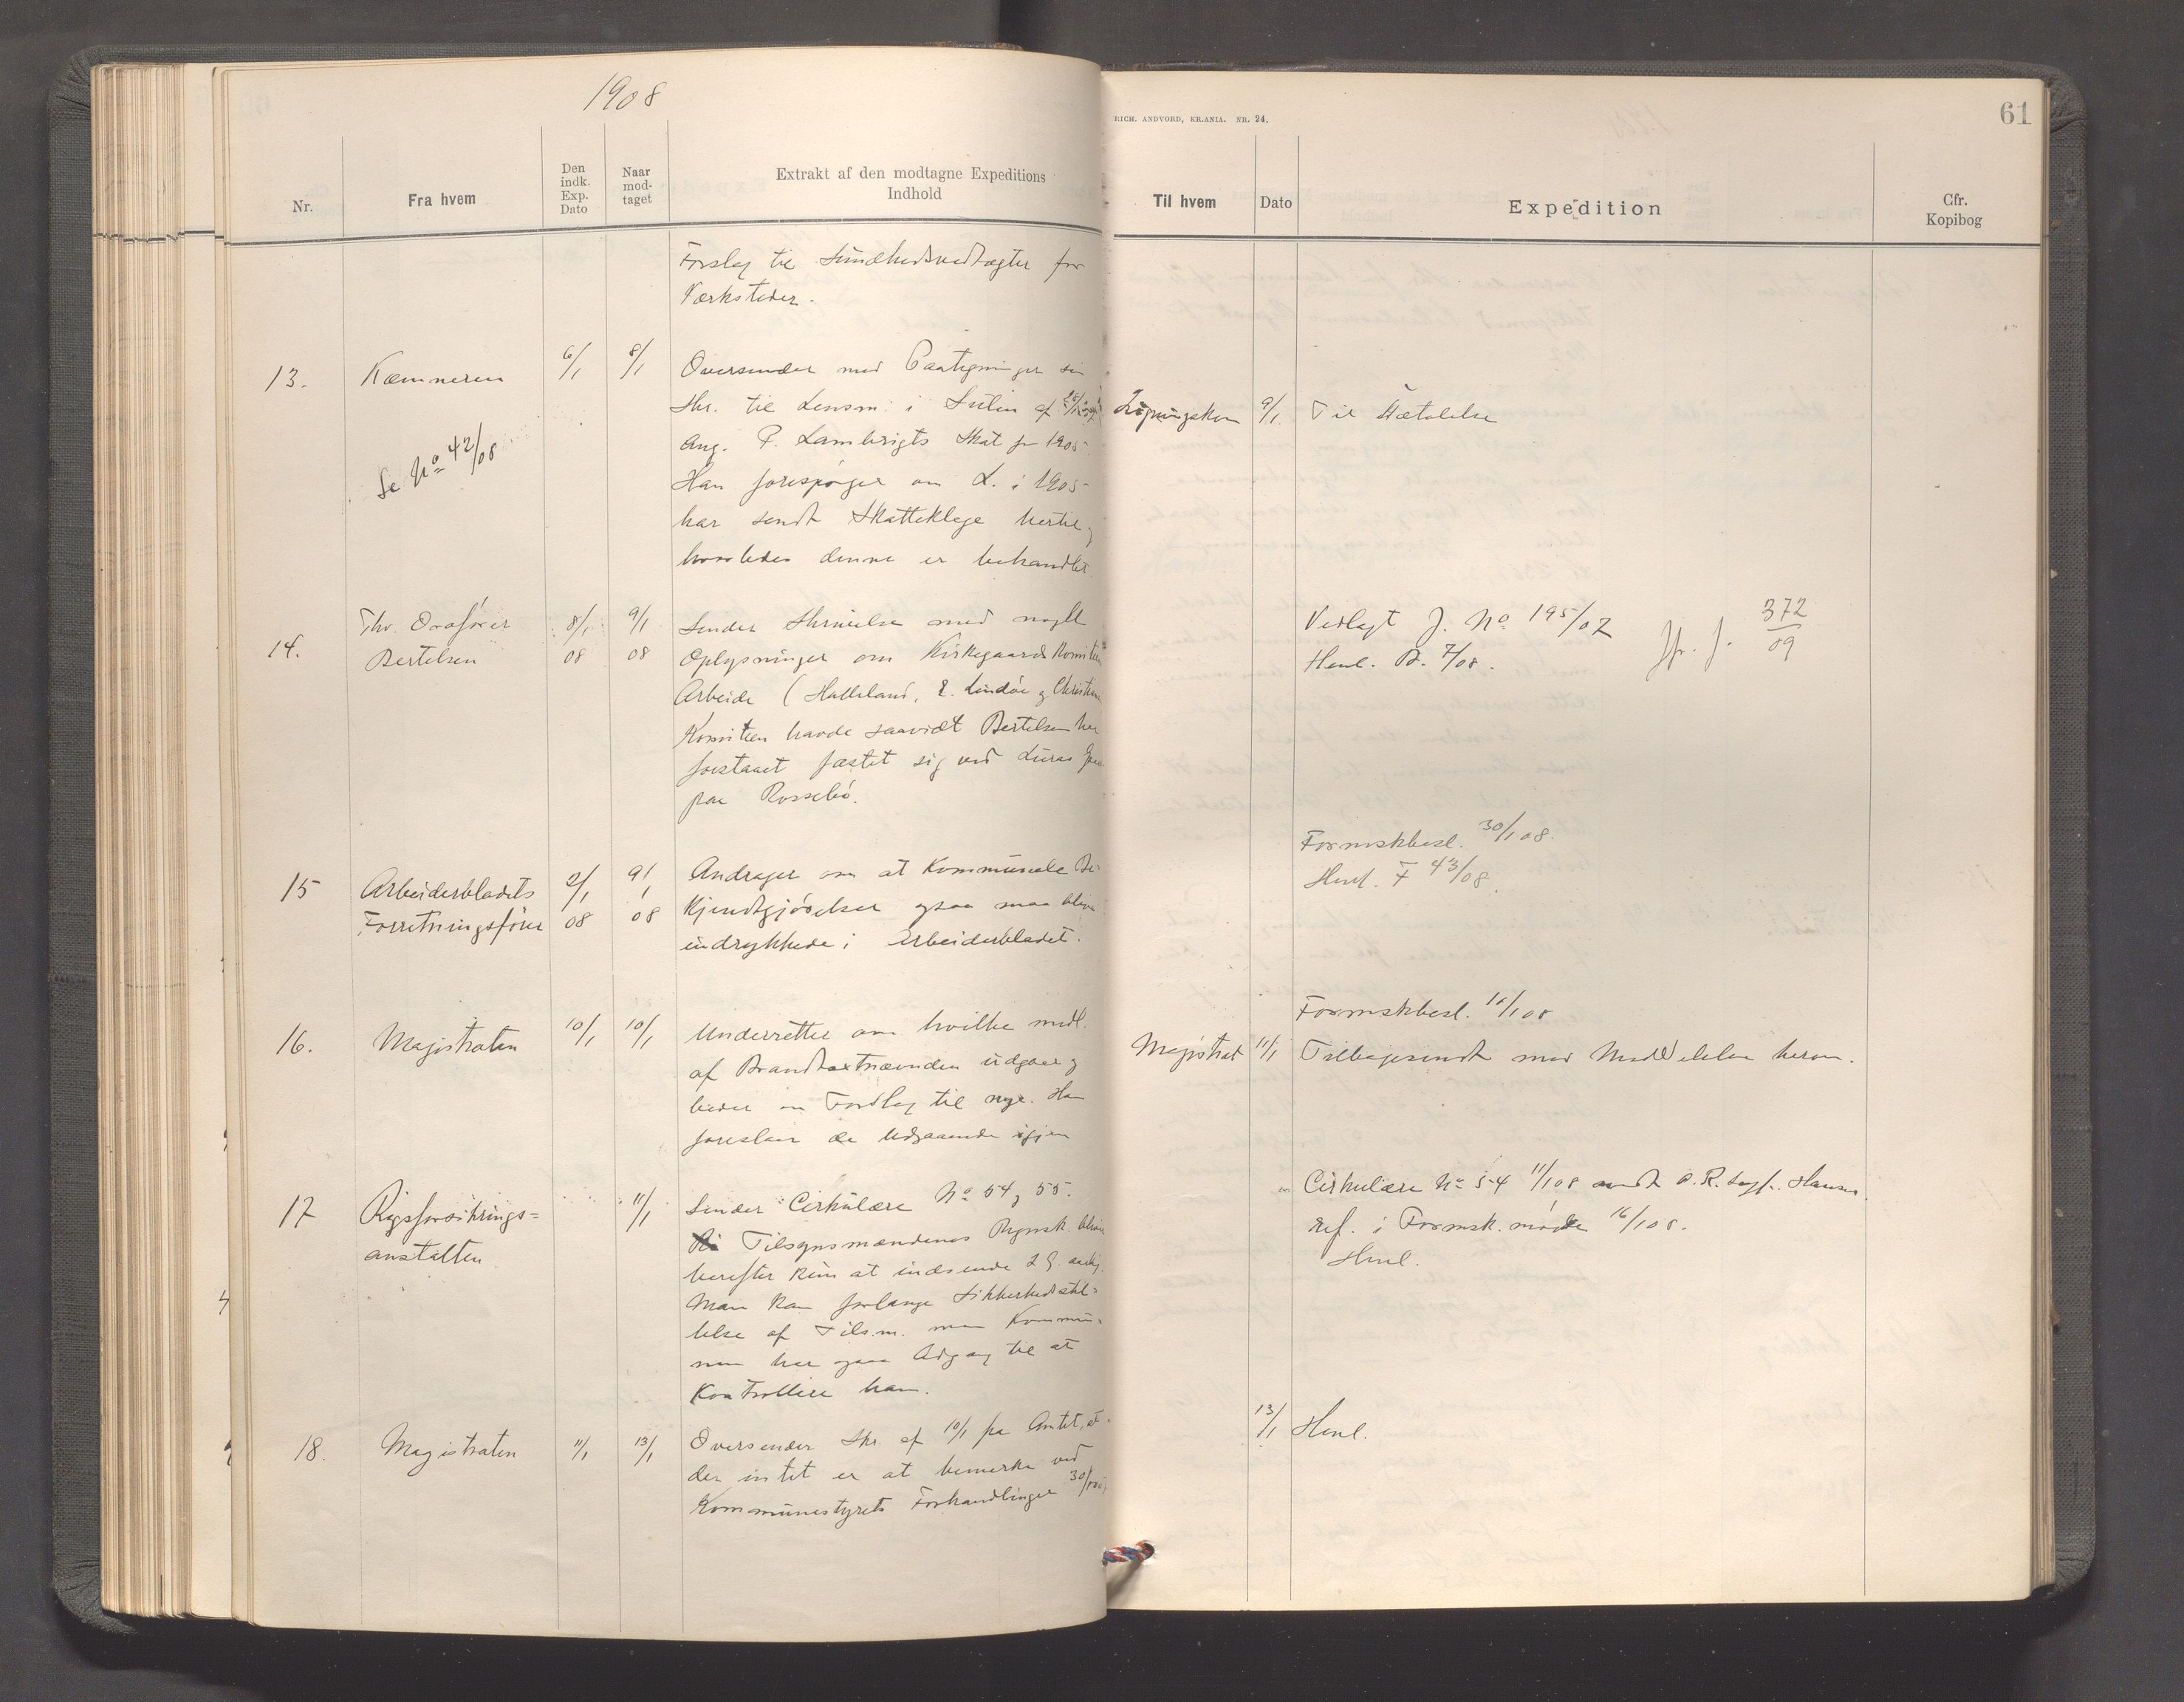 1908
RICH. ANDVORD, KR.ANIA. NR. 24.
61
Nr.
Fra hvem
Den indk. Exp. Dato
Naar mod-taget
Extrakt af den modtagne Expeditions
Indhold
Til hvem
Dato
Expedition
Cfr.
Kopibog
Forslag til Sundhedsvedtægter for
Værksteder.
13.
Kæmneren
6/1
8/1
Oversender med Paategninger sin
Skr. til Lensm. i
ang. P. Lambrigts Skat for 1905
Han forespørger om L. i 1905
har sendt Skatteklage hertil og
hvorledes denne er behandlet
Se No 42/08
Ligningskom
9/1
Til Uttalelse
14.
Thv. Ordfører
Bertelsen
8/1 08
9/1 08
Sender Skrivelse med nogle
Oplysninger om Kirkegaardskomiteens
Arbeide (Hatteland, E. Lindøe og Christians
Komiteen havde saavidt Bertelsen har
forstaaet fæstet sig ved Luras
paa Rossebø.
Vedlagt J. No 195/07
Henl. B. 7/08.
Jfr. J. 372/09
15
Arbeiderbladets
Forretningsfører
2/1 08
9/1 08
Andrager om at Kommunale Be-
kjendtgjørelser ogsaa maa blive
indrykkede i Arbeiderbladet.
Formskbesl. 30/1 08.
Henl. F 43/08.
16.
Magistraten
10/1
10/1
Underretter om hvilke medl.
af Brandtaxtnævnden udgaar og
beder om Forslag til nye. Han
foreslaar de Udgaaende igjen
Magistrat
11/1
Formskbesl. 1 08
Tilbagesendt med Meddelelse herom.
17
Rigsforsikrings=
anstalten
11/1
Sender Cirkulære No 54 og 55.
Tilsynsmændenes Regnsk. bliver
herefter kun at indsende 2 G. aarlig.
Man kan forlange Sikkerhedsstil-
lelse af Tilsm. men Kommu-
nen har ogsaa Adgang til at
Kontrollere ham.
Cirkulære No 54 11/1 08 sendt O.R. Hansen.
ref. i Formsk. møde 16/1 08.
Henl.
18.
Magistraten
11/1
13/1
Oversender Skr. af 10/1 fra Amtet, at
der intet er at bemerke ved
Kommunestyrets Forhandlinger 30/
13/1
Henl.